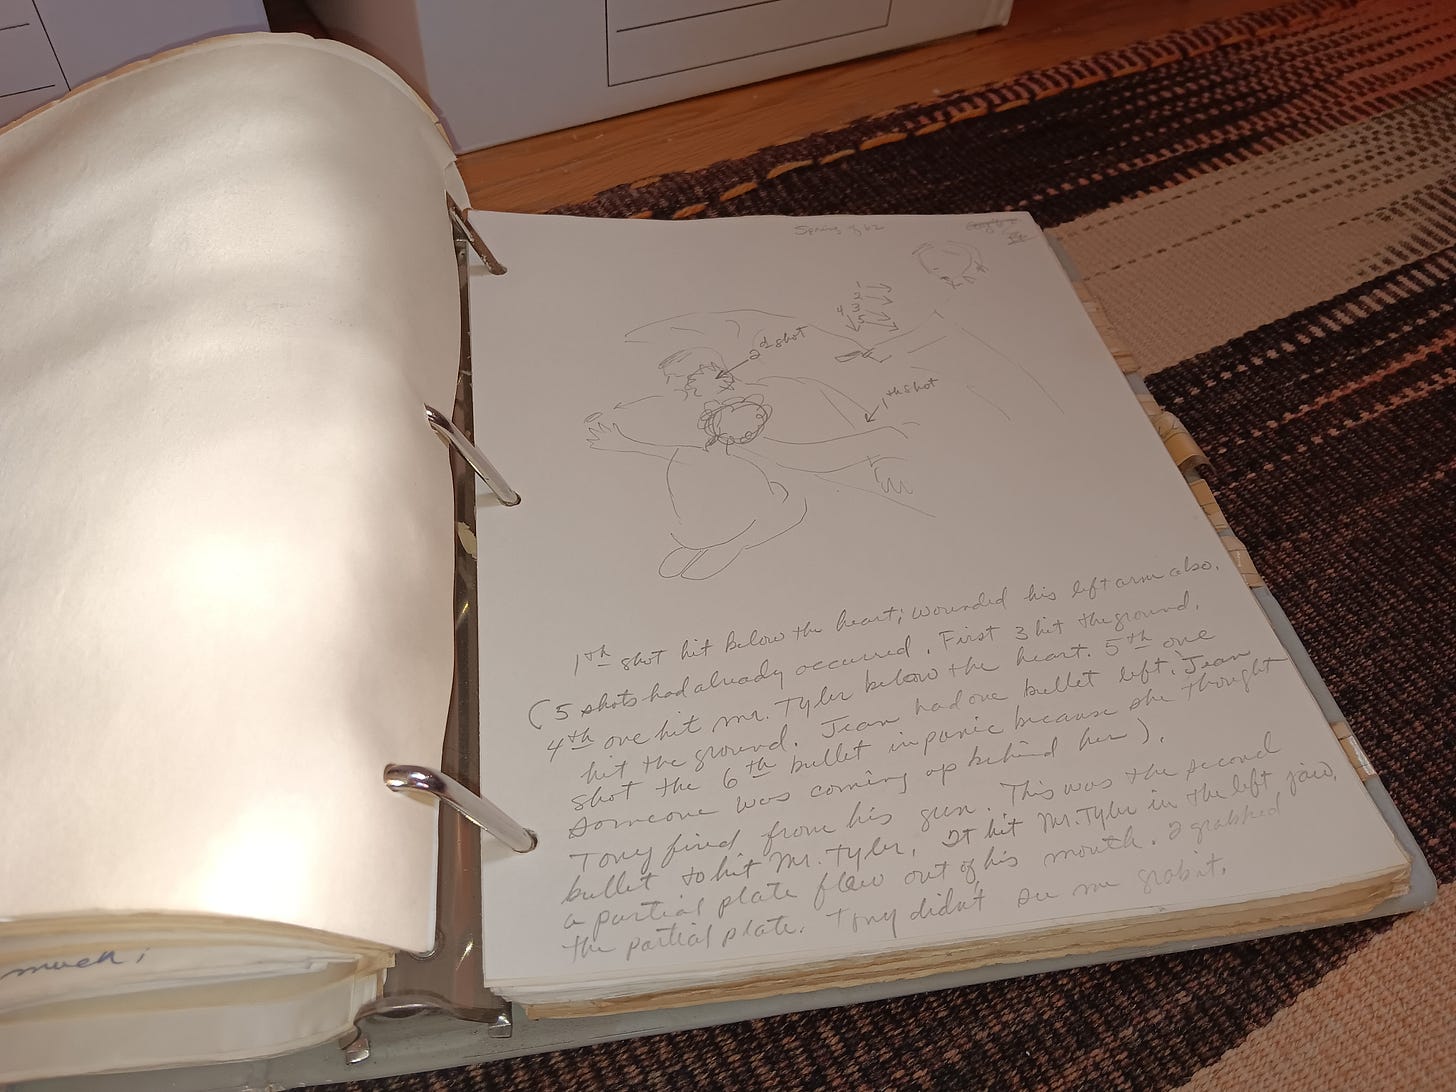 Spring of 62
1
2
3
4
5
2d shot
1th shot
1th shot hit below the heart; wounded his left arm also.
(5 shots had already occurred. First 3 hit the ground.
4th one hit Mr. Tyler below the heart. 5th one
hit the ground. Jean had one bullet left. Jean
shot the 6th bullet in panic because she thought
someone was coming up behind her).
Tony fired from his gun. This was the second
bullet to hit Mr. Tyler. It hit Mr. Tyler in the left jaw,
a partial plate flew out of his mouth. I grabbed
the partial plate. Tony didn't see me grab it.
much;